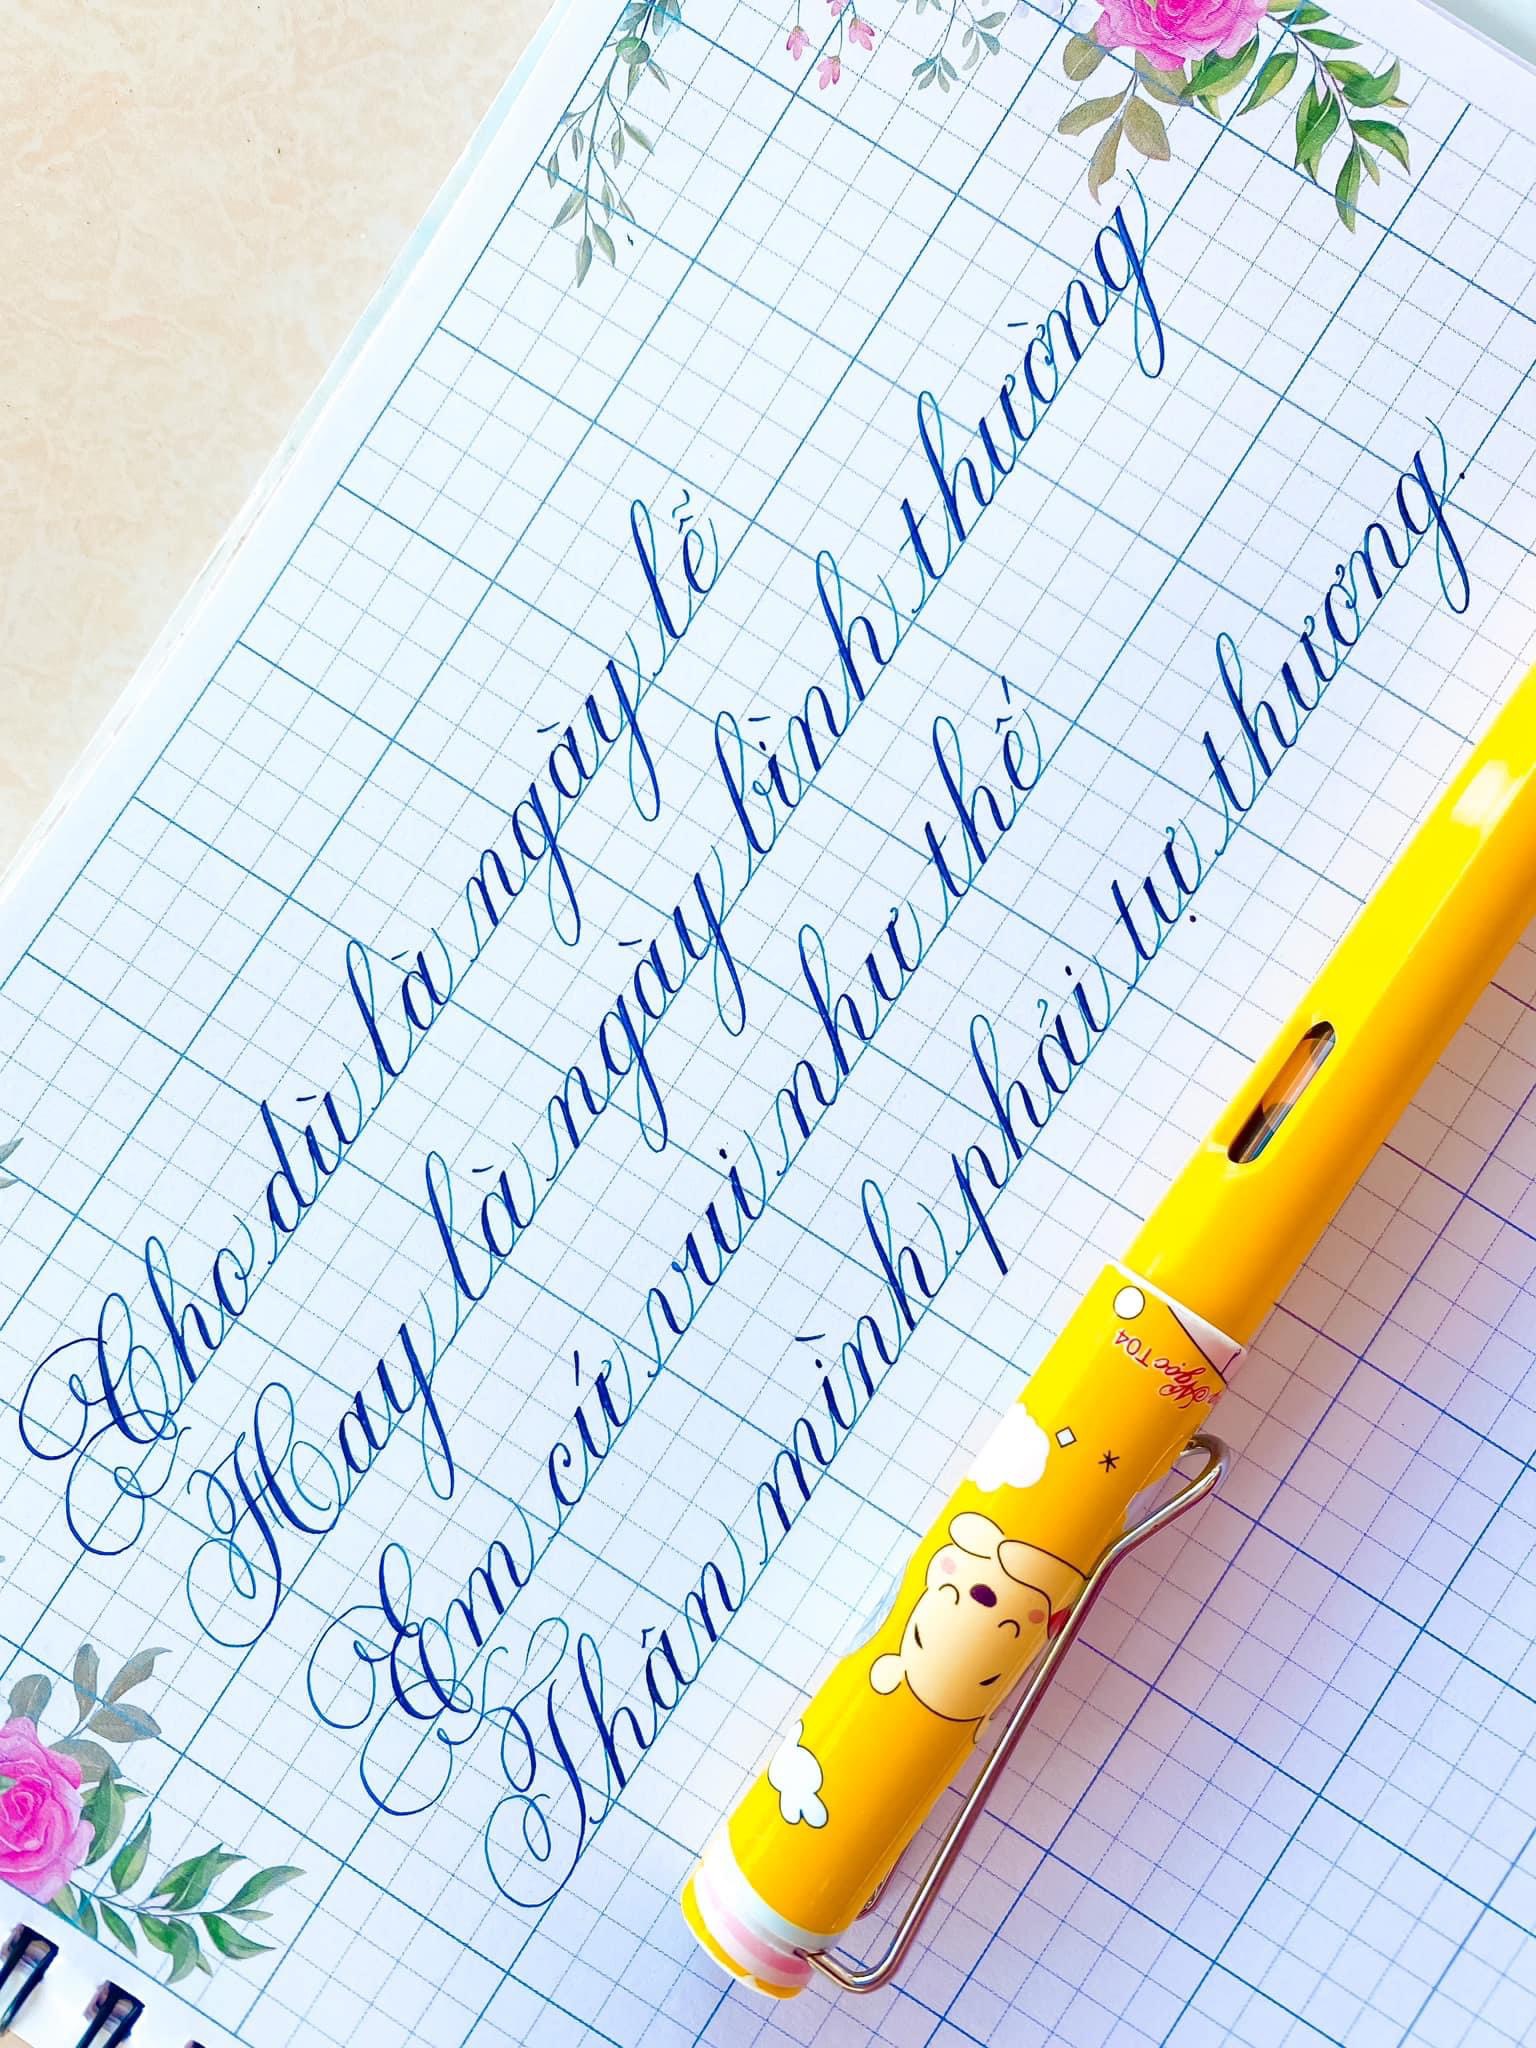 Cho dù là ngày lễ
Hay là ngày bình thường
Em cứ vui như thế
Thân mình phải tự thương.
ngọcT04